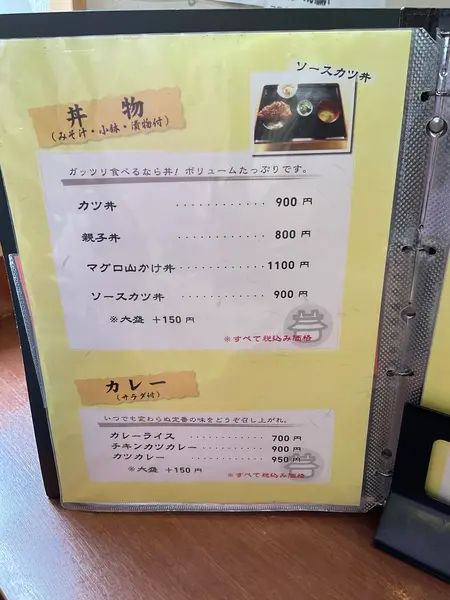 ソースカツ丼
丼 物
(みそ汁・小鉢・漬物付)
ガッツリ食べるなら丼! ボリュームたっぷりです。
カツ丼 ············ 900 円
親子丼 ············ 800 円
マグロ山かけ丼 ············ 1100 円
ソースカツ丼 ············ 900 円
※大盛 +150 円
※すべて税込み価格
カレー
(サラダ付)
いつでも変わらぬ定番の味をどうぞ召し上がれ。
カレーライス ············ 700 円
チキンカツカレー ············ 900 円
カツカレー ············ 950 円
※大盛 +150 円
※すべて税込み価格